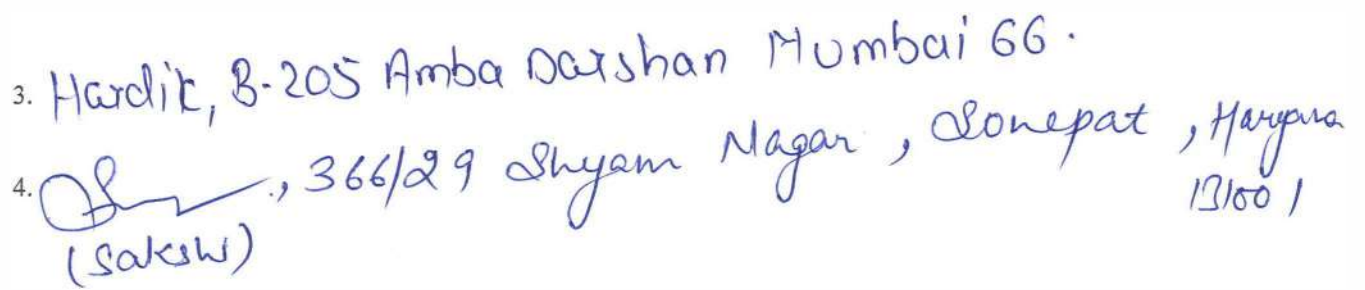 3. Hardik, B-205 Amba Darshan Mumbai 66.
4. , 366/29 Shyam Nagar, Sonepat, Haryana
131001
(Sakshi)